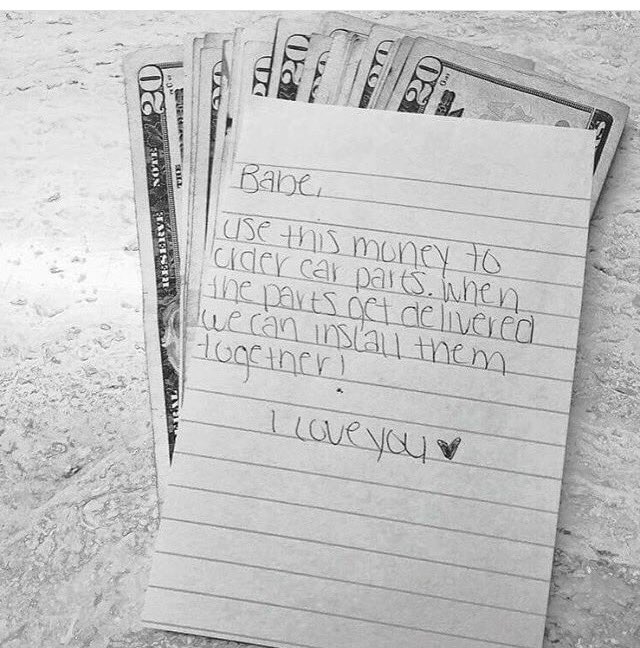 20
20
20
20
20
RESERVE NOTE
THE
Babe,
use this money to
order car parts. When
the parts get delivered
we can install them
together!
I love you